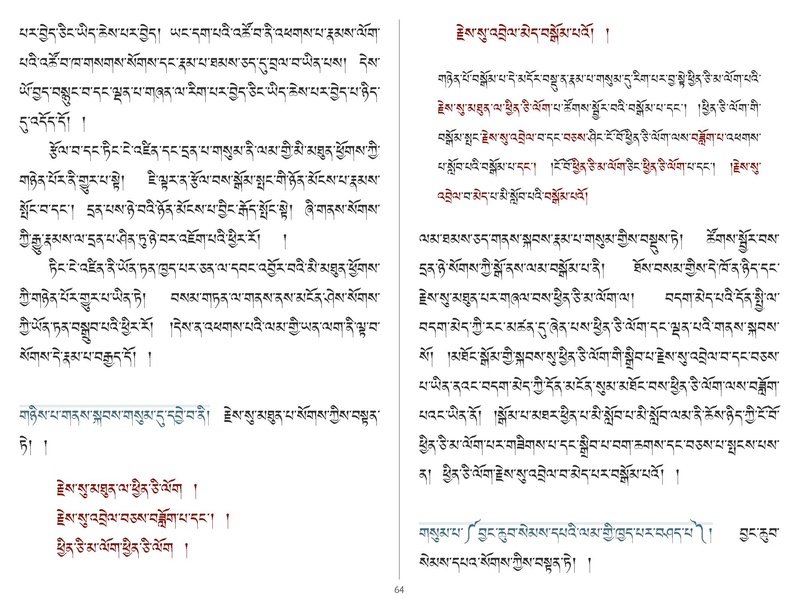 པར་བྱེད་ཅིང་ཡིད་ཆེས་པར་བྱེད། ཡང་དག་པའི་འཚོ་བ་ནི་འཕགས་པ་རྣམས་ལོག་
པའི་འཚོ་བ་ཁ་གསགས་སོགས་དང་རྣམ་པ་ཐམས་ཅད་དུ་བྲལ་བ་ཡིན་པས། དེས་
ཡོ་བྱད་བསྙུང་བ་དང་ལྡན་པ་གཞན་ལ་རིག་པར་བྱེད་ཅིང་ཡིད་ཆེས་པར་བྱེད་པ་ཉིད་
དུ་འདོད་དོ། །
རྩོལ་བ་དང་ཏིང་ངེ་འཛིན་དང་དྲན་པ་གསུམ་ནི་ལམ་གྱི་མི་མཐུན་ཕྱོགས་ཀྱི་
གཉེན་པོར་ནི་གྱུར་པ་སྟེ། ཇི་ལྟར་ན་རྩོལ་བས་སྒོམ་སྤང་གི་ཉོན་མོངས་པ་རྣམས་
སྤོང་བ་དང་། དྲན་པས་ཉེ་བའི་ཉོན་མོངས་པ་བྱིང་རྒོད་སྤོང་སྟེ། ཞི་གནས་སོགས་
ཀྱི་རྒྱུ་རྣམས་ལ་དྲན་པ་ཤིན་ཏུ་ཉེ་བར་འཇོག་པའི་ཕྱིར་རོ། །
ཏིང་ངེ་འཛིན་ནི་ཡོན་ཏན་ཁྱད་པར་ཅན་ལ་དབང་འབྱོར་བའི་མི་མཐུན་ཕྱོགས་
ཀྱི་གཉེན་པོར་གྱུར་པ་ཡིན་ཏེ། བསམ་གཏན་ལ་གནས་ནས་མངོན་ཤེས་སོགས་
ཀྱི་ཡོན་ཏན་བསྒྲུབ་པའི་ཕྱིར་རོ། །དེས་ན་འཕགས་པའི་ལམ་གྱི་ཡན་ལག་ནི་ལྟ་བ་
སོགས་དེ་རྣམ་པ་བརྒྱད་དོ། །
གཉིས་པ་གནས་སྐབས་གསུམ་དུ་དབྱེ་བ་ནི། རྗེས་སུ་མཐུན་པ་སོགས་ཀྱིས་བསྟན་
ཏེ། །
རྗེས་སུ་མཐུན་ལ་ཕྱིན་ཅི་ལོག །
རྗེས་སུ་འབྲེལ་བཅས་བཟློག་པ་དང་། །
ཕྱིན་ཅི་མ་ལོག་ཕྱིན་ཅི་ལོག །
རྗེས་སུ་འབྲེལ་མེད་བསྒོམ་པའོ། །
གཉེན་པོ་བསྒོམ་པ་དེ་མདོར་བསྡུ་ན་རྣམ་པ་གསུམ་དུ་རིག་པར་བྱ་སྟེ་ཕྱིན་ཅི་མ་ལོག་པའི་
རྗེས་སུ་མཐུན་ལ་ཕྱིན་ཅི་ལོག་པ་ཚོགས་སྦྱོར་བའི་བསྒོམ་པ་དང་། །ཕྱིན་ཅི་ལོག་གི་
བསྒོམ་སྤང་རྗེས་སུ་འབྲེལ་བ་དང་བཅས་ཤིང་ངོ་བོ་ཕྱིན་ཅི་ལོག་ལས་བཟློག་པ་འཕགས་
པ་སློབ་པའི་བསྒོམ་པ་དང་། །ངོ་བོ་ཕྱིན་ཅི་མ་ལོག་ཅིང་ཕྱིན་ཅི་ལོག་པ་དང་། །རྗེས་སུ་
འབྲེལ་བ་མེད་པ་མི་སློབ་པའི་བསྒོམ་པའོ།
ལམ་ཐམས་ཅད་གནས་སྐབས་རྣམ་པ་གསུམ་གྱིས་བསྡུས་ཏེ། ཚོགས་སྦྱོར་བས་
དྲན་ཉེ་སོགས་ཀྱི་སྒོ་ནས་ལམ་བསྒོམ་པ་ནི། ཐོས་བསམ་གྱིས་དེ་ཁོ་ན་ཉིད་དང་
རྗེས་སུ་མཐུན་པར་གཞལ་བས་ཕྱིན་ཅི་མ་ལོག་ལ། བདག་མེད་པའི་དོན་སྤྱི་ལ་
བདག་མེད་ཀྱི་རང་མཚན་དུ་ཞེན་པས་ཕྱིན་ཅི་ལོག་དང་ལྡན་པའི་གནས་སྐབས་
སོ། །མཐོང་སྒོམ་གྱི་སྐབས་སུ་ཕྱིན་ཅི་ལོག་གི་སྒྲིབ་པ་རྗེས་སུ་འབྲེལ་བ་དང་བཅས་
པ་ཡིན་ནའང་བདག་མེད་ཀྱི་དོན་མངོན་སུམ་མཐོང་བས་ཕྱིན་ཅི་ལོག་ལས་བཟློག་
པའང་ཡིན་ནོ། །སྒོམ་པ་མཐར་ཕྱིན་པ་མི་སློབ་པ་མི་སློབ་ལམ་ནི་ཆོས་ཉིད་ཀྱི་ངོ་བོ་
ཕྱིན་ཅི་མ་ལོག་པར་གཟིགས་པ་དང་སྒྲིབ་པ་བག་ཆགས་དང་བཅས་པ་སྤངས་པས་
ན། ཕྱིན་ཅི་ལོག་རྗེས་སུ་འབྲེལ་བ་མེད་པར་བསྒོམ་པའོ། །
གསུམ་པ་༼བྱང་ཆུབ་སེམས་དཔའི་ལམ་གྱི་ཁྱད་པར་བཤད་པ༽། བྱང་ཆུབ་
སེམས་དཔའ་སོགས་ཀྱིས་བསྟན་ཏེ། །
64